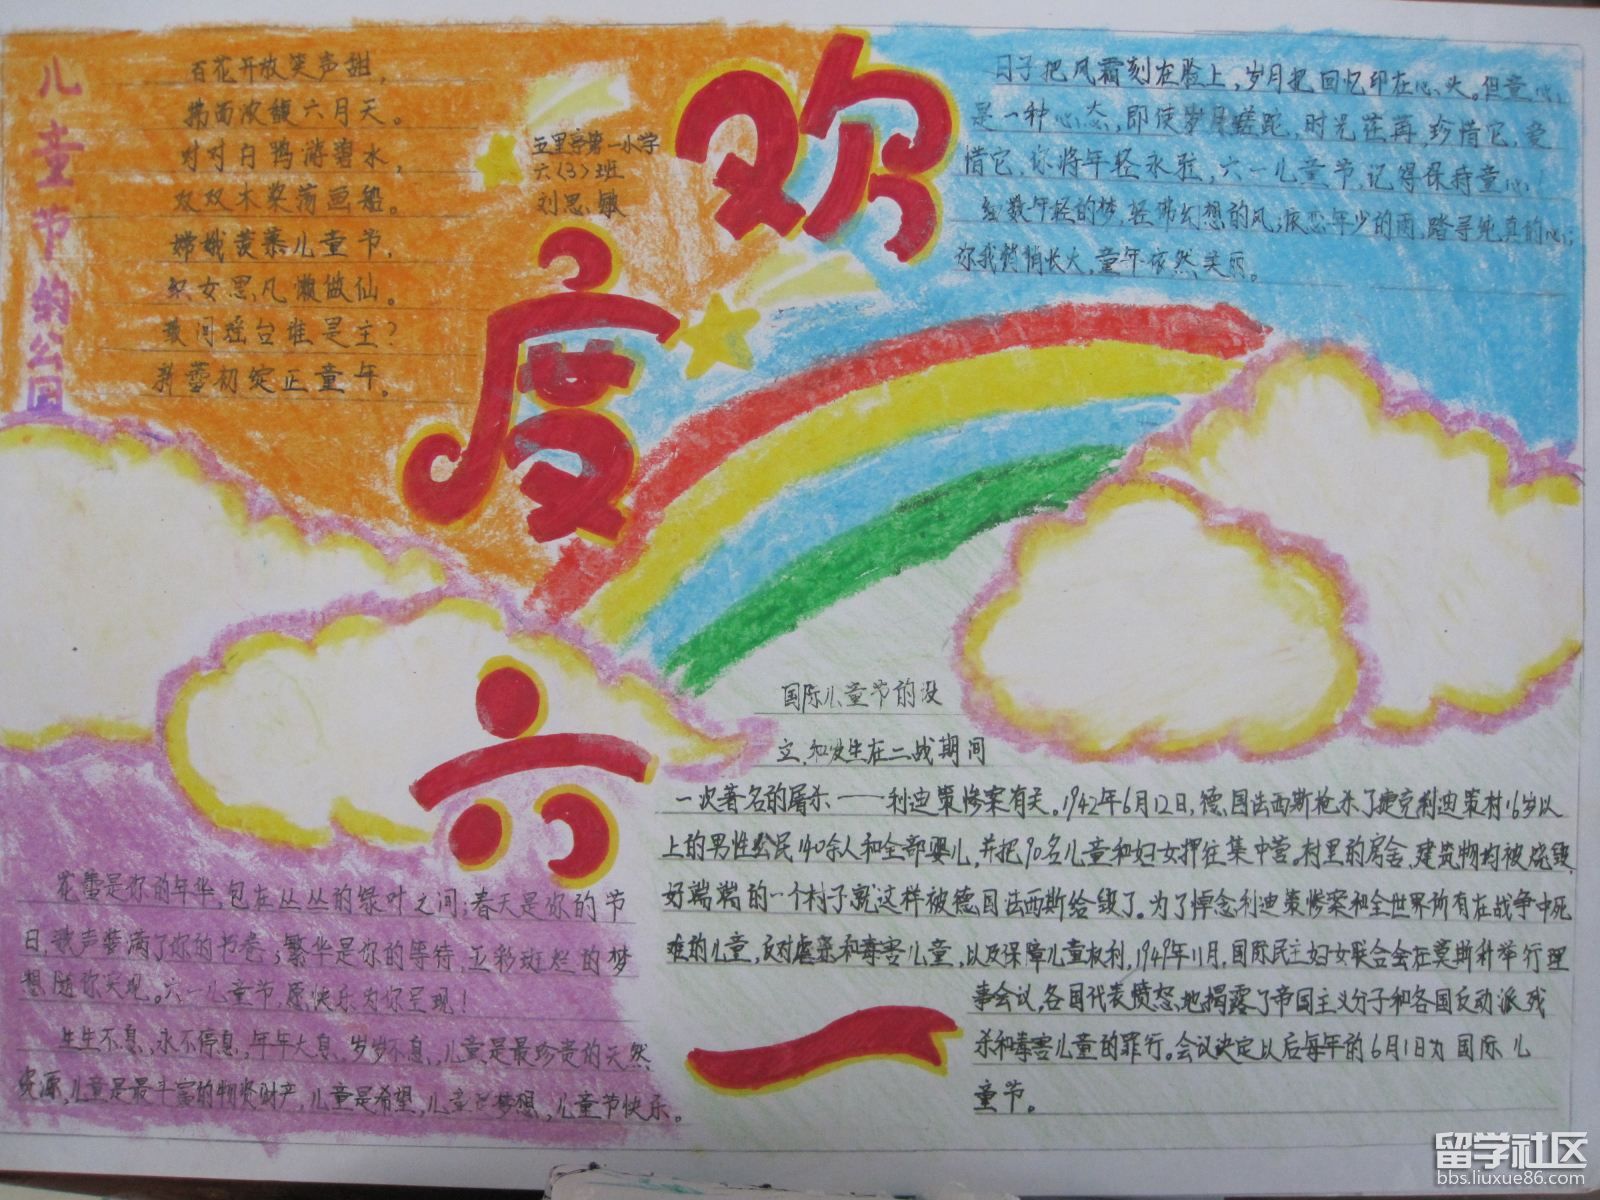 儿童节的公园
百花开放笑声甜，
拂面浓馥六月天。
对对白鸭游碧水，
双双木桨荡画船。
嫦娥羡慕儿童节，
织女思凡懒做仙。
敢问瑶台谁是主？
新蕾初绽正童年。
五里亭第一小学
六〈3〉班
刘思敏
欢
度
六
一
日子把风霜刻在脸上，岁月把回忆印在心头。但童心，
是一种心态，即使岁月蹉跎，时光荏苒，珍惜它，爱
惜它，你将年轻永驻，六一儿童节，记得保持童心！
数年轻的梦，轻拂幻想的风；依恋年少的雨，踏寻纯真的心；
你我悄悄长大，童年依然美丽。
国际儿童节的设
立，和发生在二战期间
一次著名的屠杀——利迪策惨案有关。1942年6月12日，德国法西斯枪杀了捷克利迪策村16岁以
上的男性公民140余人和全部婴儿，并把90名儿童和妇女押往集中营。村里的房舍、建筑物均被烧毁，
好端端的一个村子就这样被德国法西斯给毁了。为了悼念利迪策惨案和全世界所有在战争中死
难的儿童，反对虐杀和毒害儿童，以及保障儿童权利，1949年11月，国际民主妇女联合会在莫斯科举行理
事会议，各国代表愤怒地揭露了帝国主义分子和各国反动派残
杀和毒害儿童的罪行。会议决定以后每年的6月1日为国际儿
童节。
花蕾是你的年华，包在丛丛的绿叶之间；春天是你的节
日，歌声梦满了你的书卷；繁华是你的等待，五彩斑烂的梦
想随你实现。六一儿童节，愿快乐为你呈现！
生生不息，永不停息，年年大息，岁岁不息，儿童是最珍贵的天然
资源，儿童是最丰富的物资财产，儿童是希望，儿童是梦想，儿童节快乐。
留学社区
bbs.liuxue86.com